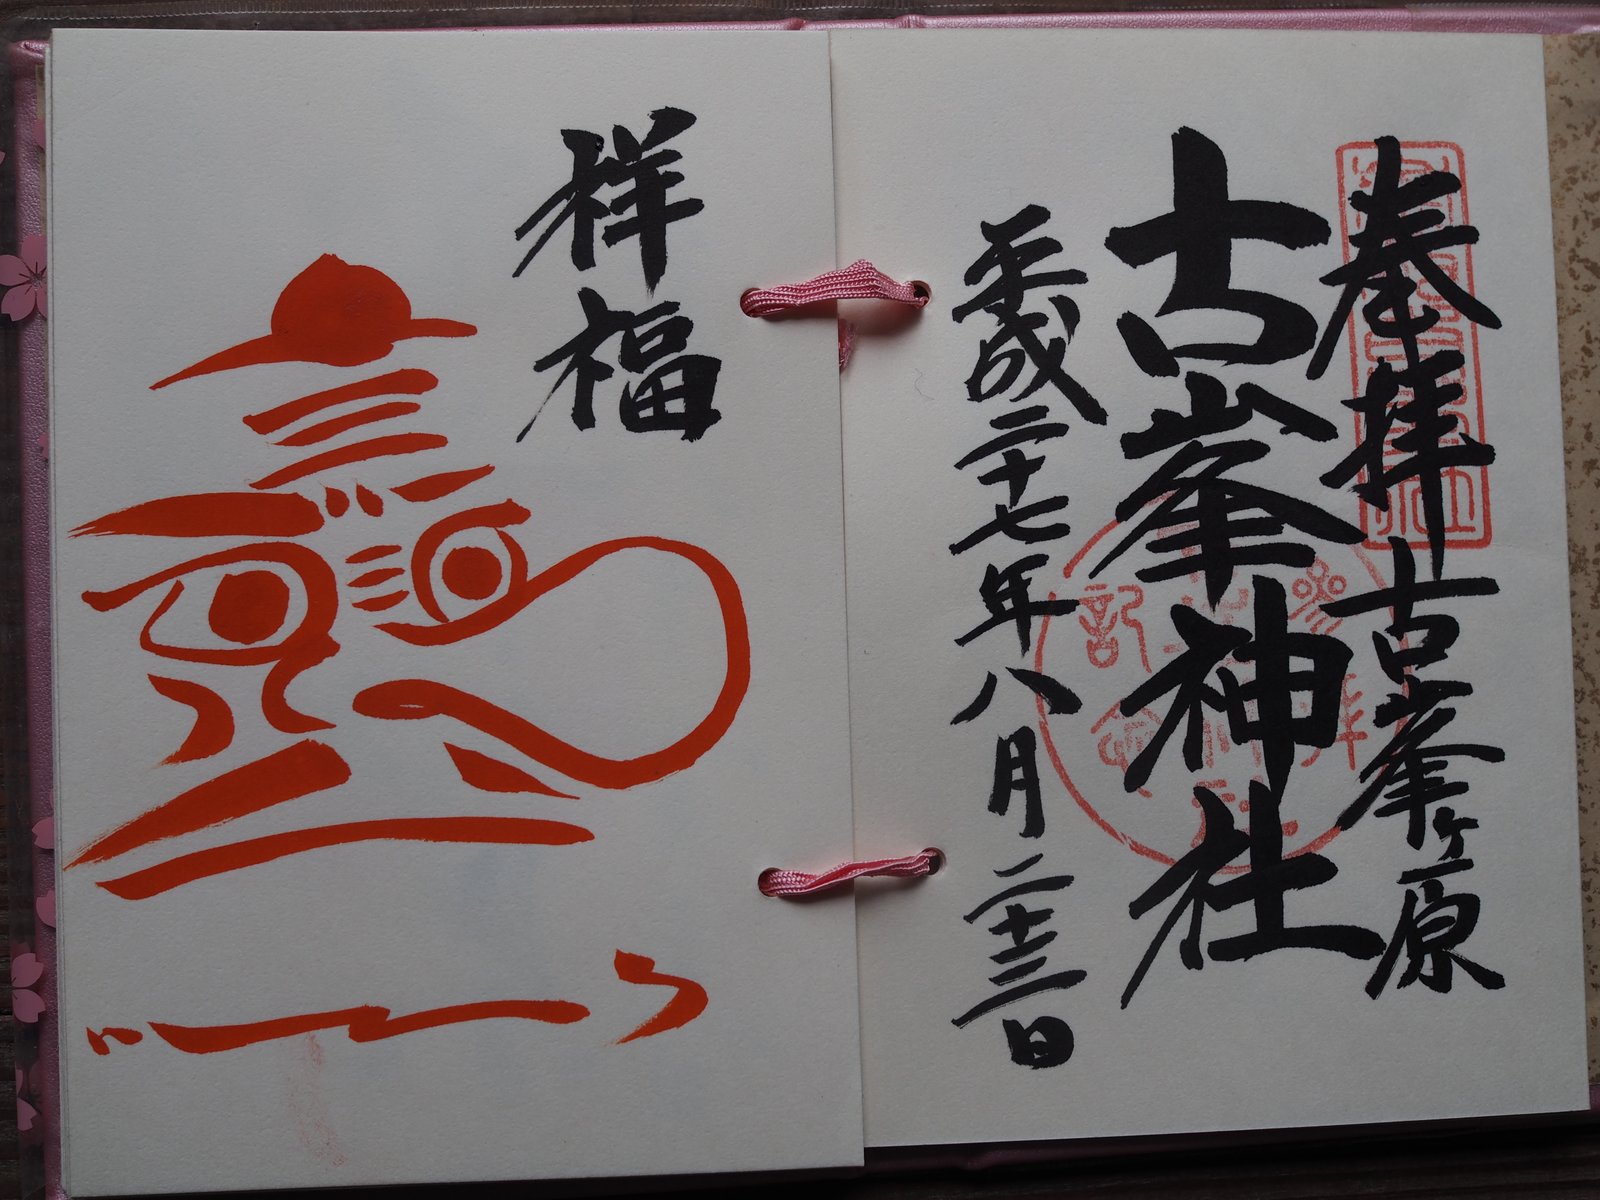 奉拝 古峯ヶ原
古峯神社
平成二十七年八月二十三日
祥福